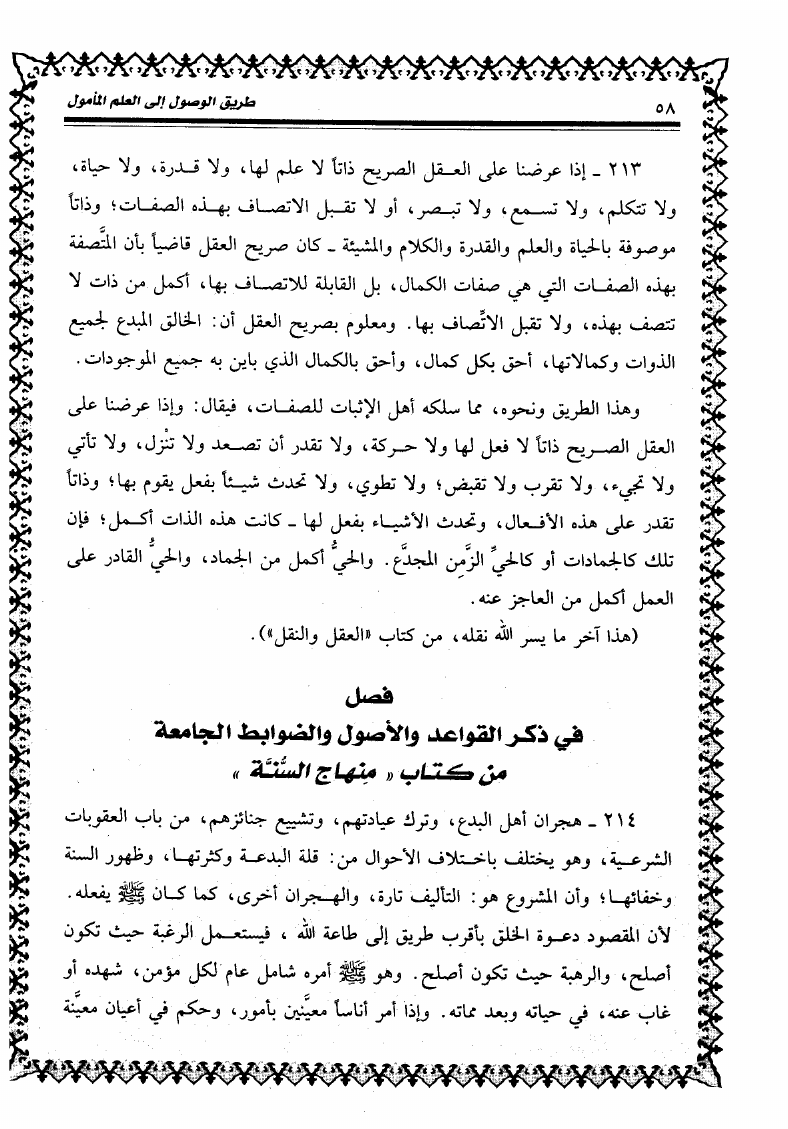 ٥٨
طريق الوصول إلى العلم المأمول
٢١٣ ـ إذا عرضنا على العقل الصريح ذاتاً لا علم لها، ولا قدرة، ولا حياة،
ولا تتكلم، ولا تسمع، ولا تبصر، أو لا تقبل الاتصاف بهذه الصفات؛ وذاتاً
موصوفة بالحياة والعلم والقدرة والكلام والمشيئة ـ كان صريح العقل قاضياً بأن المتَّصفة
بهذه الصفات التي هي صفات الكمال، بل القابلة للاتصاف بها، أكمل من ذات لا
تتصف بهذه، ولا تقبل الاتِّصاف بها. ومعلوم بصريح العقل أن: الخالق المبدع لجميع
الذوات وكمالاتها، أحق بكل كمال، وأحق بالكمال الذي باين به جميع الموجودات.
وهذا الطريق ونحوه، مما سلكه أهل الإثبات للصفات، فيقال: وإذا عرضنا على
العقل الصريح ذاتاً لا فعل لها ولا حركة، ولا تقدر أن تصعد ولا تنْزل، ولا تأتي
ولا تجيء، ولا تقرب ولا تقبض؛ ولا تطوي، ولا تحدث شيئاً بفعل يقوم بها؛ وذاتاً
تقدر على هذه الأفعال، وتحدث الأشياء بفعل لها ـ كانت هذه الذات أكمل؛ فإن
تلك كالجمادات أو كالحيِّ الزَّمِن المجدَّع. والحيُّ أكمل من الجماد، والحيُّ القادر على
العمل أكمل من العاجز عنه.
(هذا آخر ما يسر الله نقله، من كتاب «العقل والنقل»).
فصل
في ذكر القواعد والأصول والضوابط الجامعة
من كتاب « مِنهاج السُّنَّة »
٢١٤ ـ هجران أهل البدع، وترك عيادتهم، وتشييع جنائزهم، من باب العقوبات
الشرعية، وهو يختلف باختلاف الأحوال من: قلة البدعة وكثرتها، وظهور السنة
وخفائها؛ وأن المشروع هو: التأليف تارة، والهجران أخرى، كما كان ﷺ يفعله.
لأن المقصود دعوة الخلق بأقرب طريق إلى طاعة الله ، فيستعمل الرغبة حيث تكون
أصلح، والرهبة حيث تكون أصلح. وهو ﷺ أمره شامل عام لكل مؤمن، شهده أو
غاب عنه، في حياته وبعد مماته. وإذا أمر أناساً معيَّنين بأمور، وحكم في أعيان معيَّنة